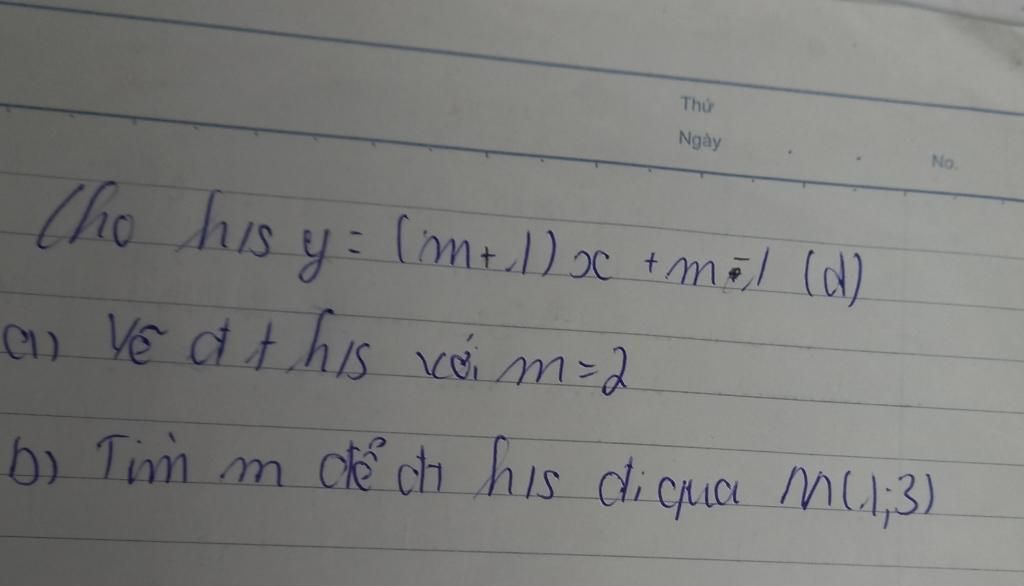 Thứ
Ngày . .
No.
Cho h/s y = (m+1)x + m - 1 (d)
a) Vẽ đt h/s với m = 2
b) Tìm m để đt h/s đi qua M(1;3)